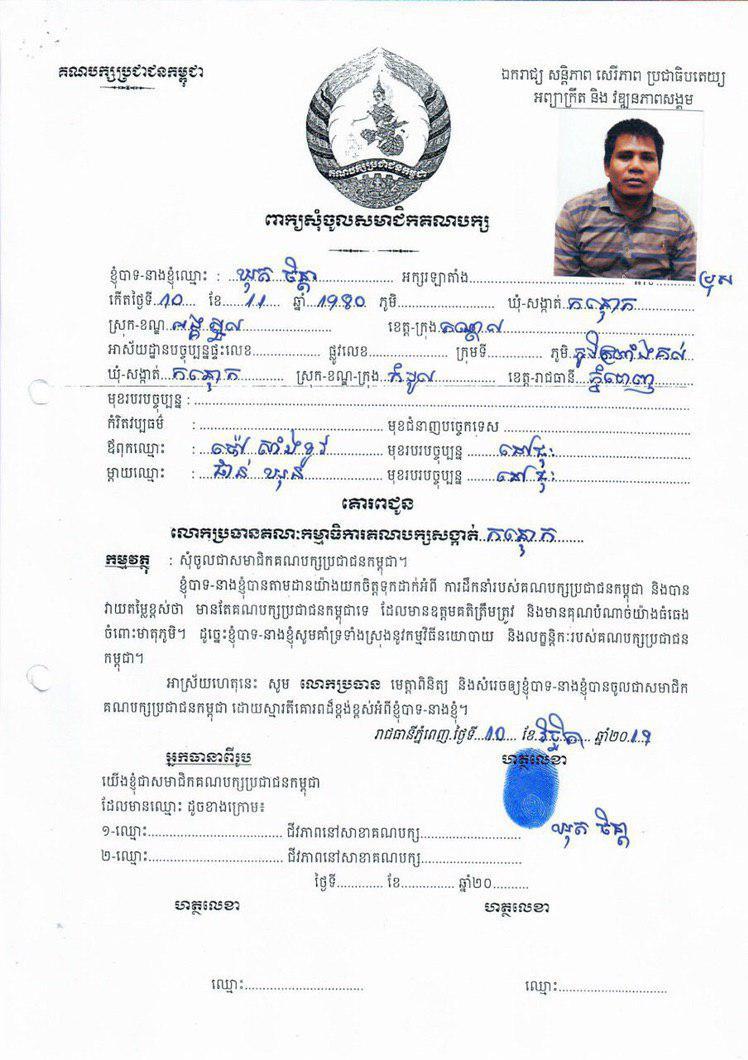 គណបក្សប្រជាជនកម្ពុជា
ឯករាជ្យ សន្តិភាព សេរីភាព ប្រជាធិបតេយ្យ
អព្យាក្រឹត និង វឌ្ឍនភាពសង្គម
គណបក្សប្រជាជនកម្ពុជា
ពាក្យសុំចូលសមាជិកគណបក្ស
ខ្ញុំបាទ-នាងខ្ញុំឈ្មោះ : ឃុត ចិត្តា អក្សរឡាតាំង ប្រុស
កើតថ្ងៃទី 10 ខែ 11 ឆ្នាំ 1980 ភូមិ ឃុំ-សង្កាត់ កន្ទោក
ស្រុក-ខណ្ឌ អង្គស្នួល ខេត្ត-ក្រុង កណ្តាល
អាស័យដ្ឋានបច្ចុប្បន្នផ្ទះលេខ ផ្លូវលេខ ក្រុមទី ភូមិ
ឃុំ-សង្កាត់ កន្ទោក ស្រុក-ខណ្ឌ-ក្រុង កំបូល ខេត្ត-រាជធានី ភ្នំពេញ
មុខរបរបច្ចុប្បន្ន :
កំរិតវប្បធម៌ : មុខជំនាញបច្ចេកទេស
ឪពុកឈ្មោះ : មុខរបរបច្ចុប្បន្ន
ម្តាយឈ្មោះ : ផាន់ មុខរបរបច្ចុប្បន្ន
គោរពជូន
លោកប្រធានគណៈកម្មាធិការគណបក្សសង្កាត់ កន្ទោក
កម្មវត្ថុ : សុំចូលជាសមាជិកគណបក្សប្រជាជនកម្ពុជា។
ខ្ញុំបាទ-នាងខ្ញុំបានតាមដានយ៉ាងយកចិត្តទុកដាក់អំពី ការដឹកនាំរបស់គណបក្សប្រជាជនកម្ពុជា និងបាន
វាយតម្លៃខ្ពស់ថា មានតែគណបក្សប្រជាជនកម្ពុជាទេ ដែលមានឧត្តមគតិត្រឹមត្រូវ និងមានគុណបំណាច់យ៉ាងធំធេង
ចំពោះមាតុភូមិ។ ដូច្នេះខ្ញុំបាទ-នាងខ្ញុំសូមគាំទ្រទាំងស្រុងនូវកម្មវិធីនយោបាយ និងលក្ខន្តិកៈរបស់គណបក្សប្រជាជន
កម្ពុជា។
អាស្រ័យហេតុនេះ សូម លោកប្រធាន មេត្តាពិនិត្យ និងសំរេចឲ្យខ្ញុំបាទ-នាងខ្ញុំបានចូលជាសមាជិក
គណបក្សប្រជាជនកម្ពុជា ដោយស្មារតីគោរពដ៏ខ្ពង់ខ្ពស់អំពីខ្ញុំបាទ-នាងខ្ញុំ។
រាជធានីភ្នំពេញ.ថ្ងៃទី 10 ខែ វិច្ឆិកា ឆ្នាំ២០ 19
អ្នកធានាពីរូប
ហត្ថលេខា
យើងខ្ញុំជាសមាជិកគណបក្សប្រជាជនកម្ពុជា
ដែលមានឈ្មោះ ដូចខាងក្រោម៖
១-ឈ្មោះ ជីវភាពនៅសាខាគណបក្ស
ឃុត ចិត្តា
២-ឈ្មោះ ជីវភាពនៅសាខាគណបក្ស
ថ្ងៃទី ខែ ឆ្នាំ២០
ហត្ថលេខា ហត្ថលេខា
ឈ្មោះ ឈ្មោះ